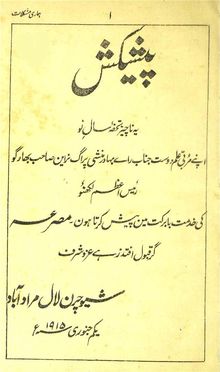 ہماری مشکلات
۱
پیشکش
یہ ناچیز تحفۂ سال نو
اپنے مربّی علم دوست جناب رائے بہادر منشی پراگ نراین صاحب بھارگو
رئیس اعظم لکھنؤ
کی خدمت بابرکت مین پیش کرتا ہون۔ مصرعہ
گر قبول افتد زہے عز و شرف
شیوچرن لال مرادآباد
یکم جنوری ۱۹۱۵ء